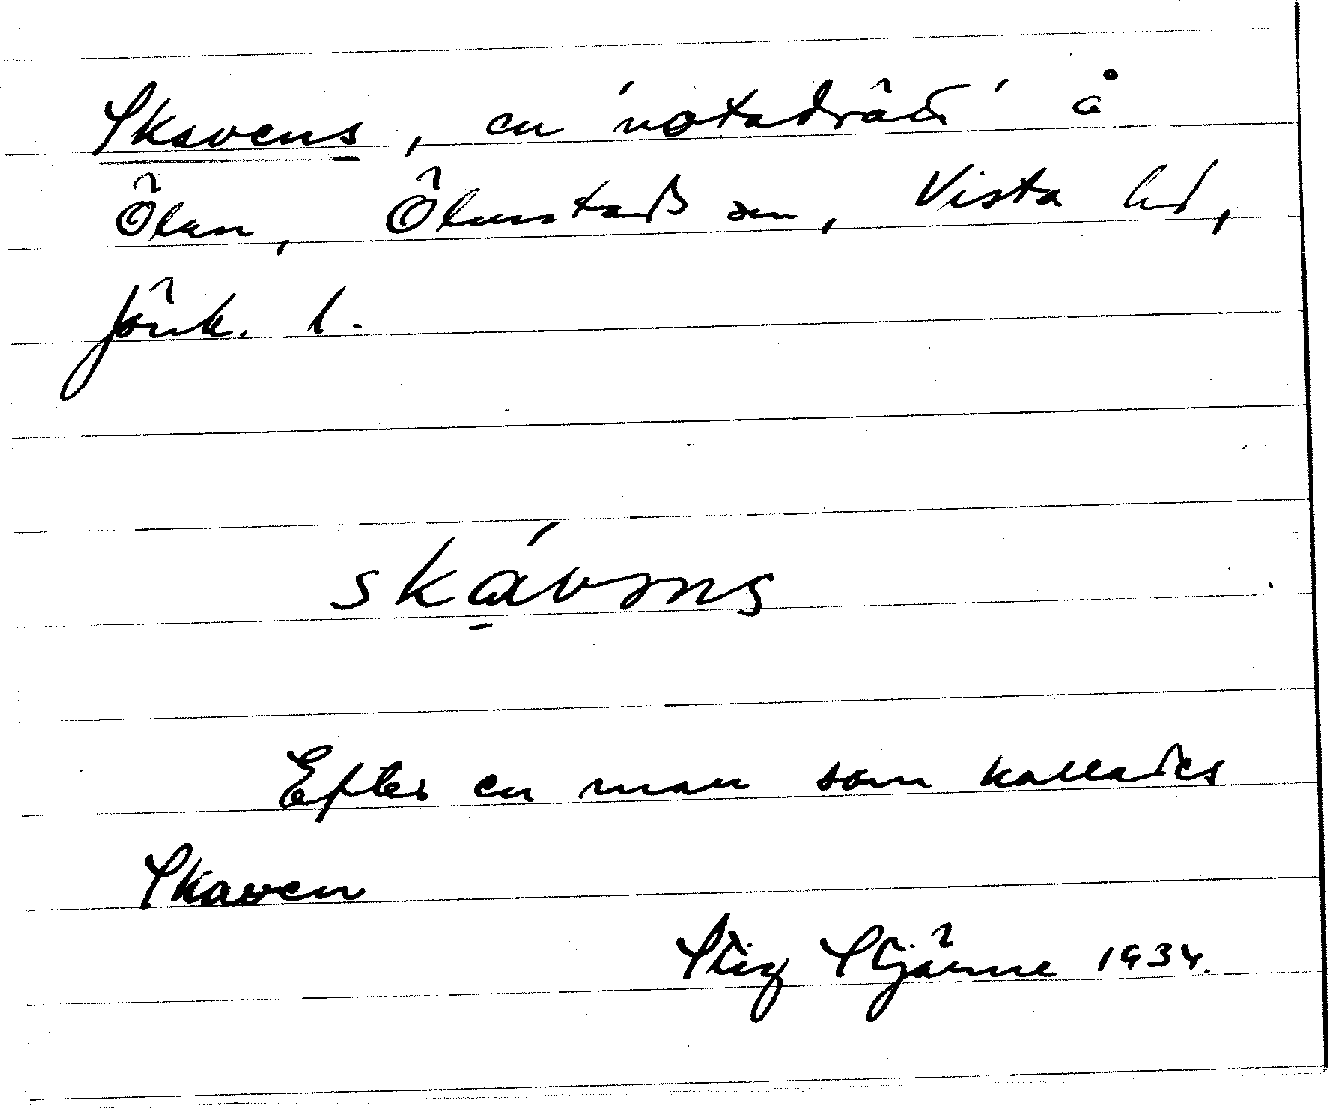 Skavens, en 'notadrät' å
Ölen, Ölmstads sn, Vista hd,
Jönk. l.
skávəns
Efter en man som kallades
Skaven
Stig Stjärne 1934.